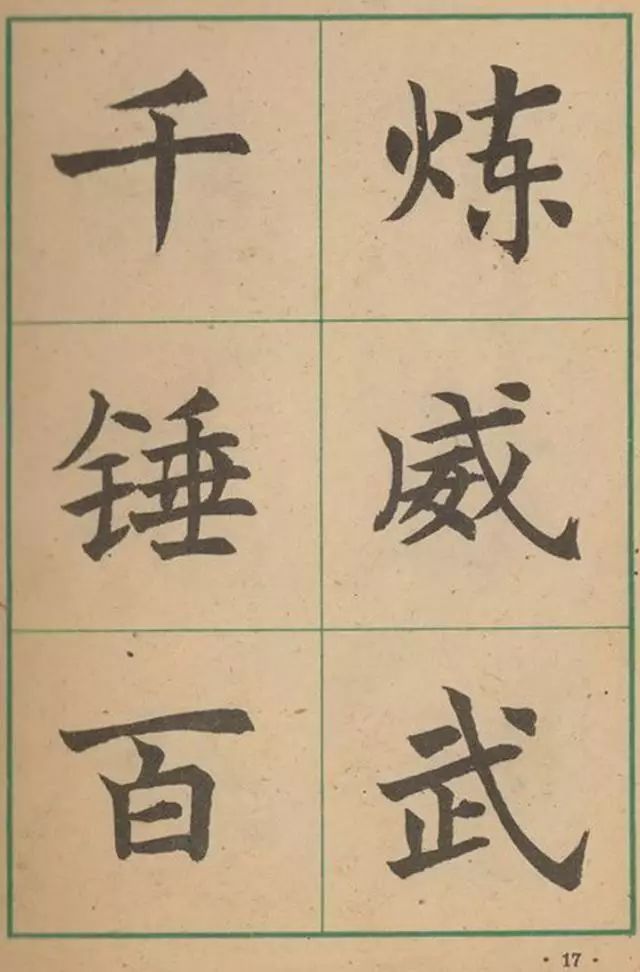 千锤百
炼威武
· 17 ·